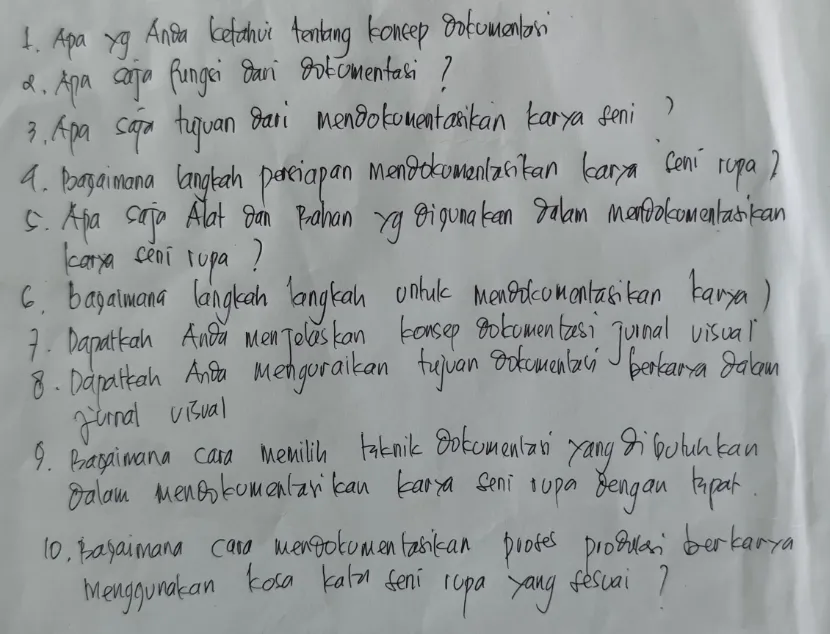 1. Apa yg Anda ketahui tentang konsep dokumentasi
2. Apa saja fungsi dari dokumentasi ?
3. Apa saja tujuan dari mendokumentasikan karya seni ?
4. Bagaimana langkah persiapan mendokumentasikan karya seni rupa ?
5. Apa saja Alat dan Bahan yg digunakan dalam mendokumentasikan
karya seni rupa ?
6. bagaimana langkah langkah untuk mendokumentasikan karya ?
7. Dapatkah Anda menjelaskan konsep dokumentasi jurnal visual
8. Dapatkah Anda menguraikan tujuan dokumentasi berkarya dalam
jurnal visual
9. Bagaimana cara memilih teknik dokumentasi yang dibutuhkan
dalam mendokumentasikan karya seni rupa dengan tepat.
10. Bagaimana cara mendokumentasikan proses produksi berkarya
menggunakan kosa kata seni rupa yang sesuai ?